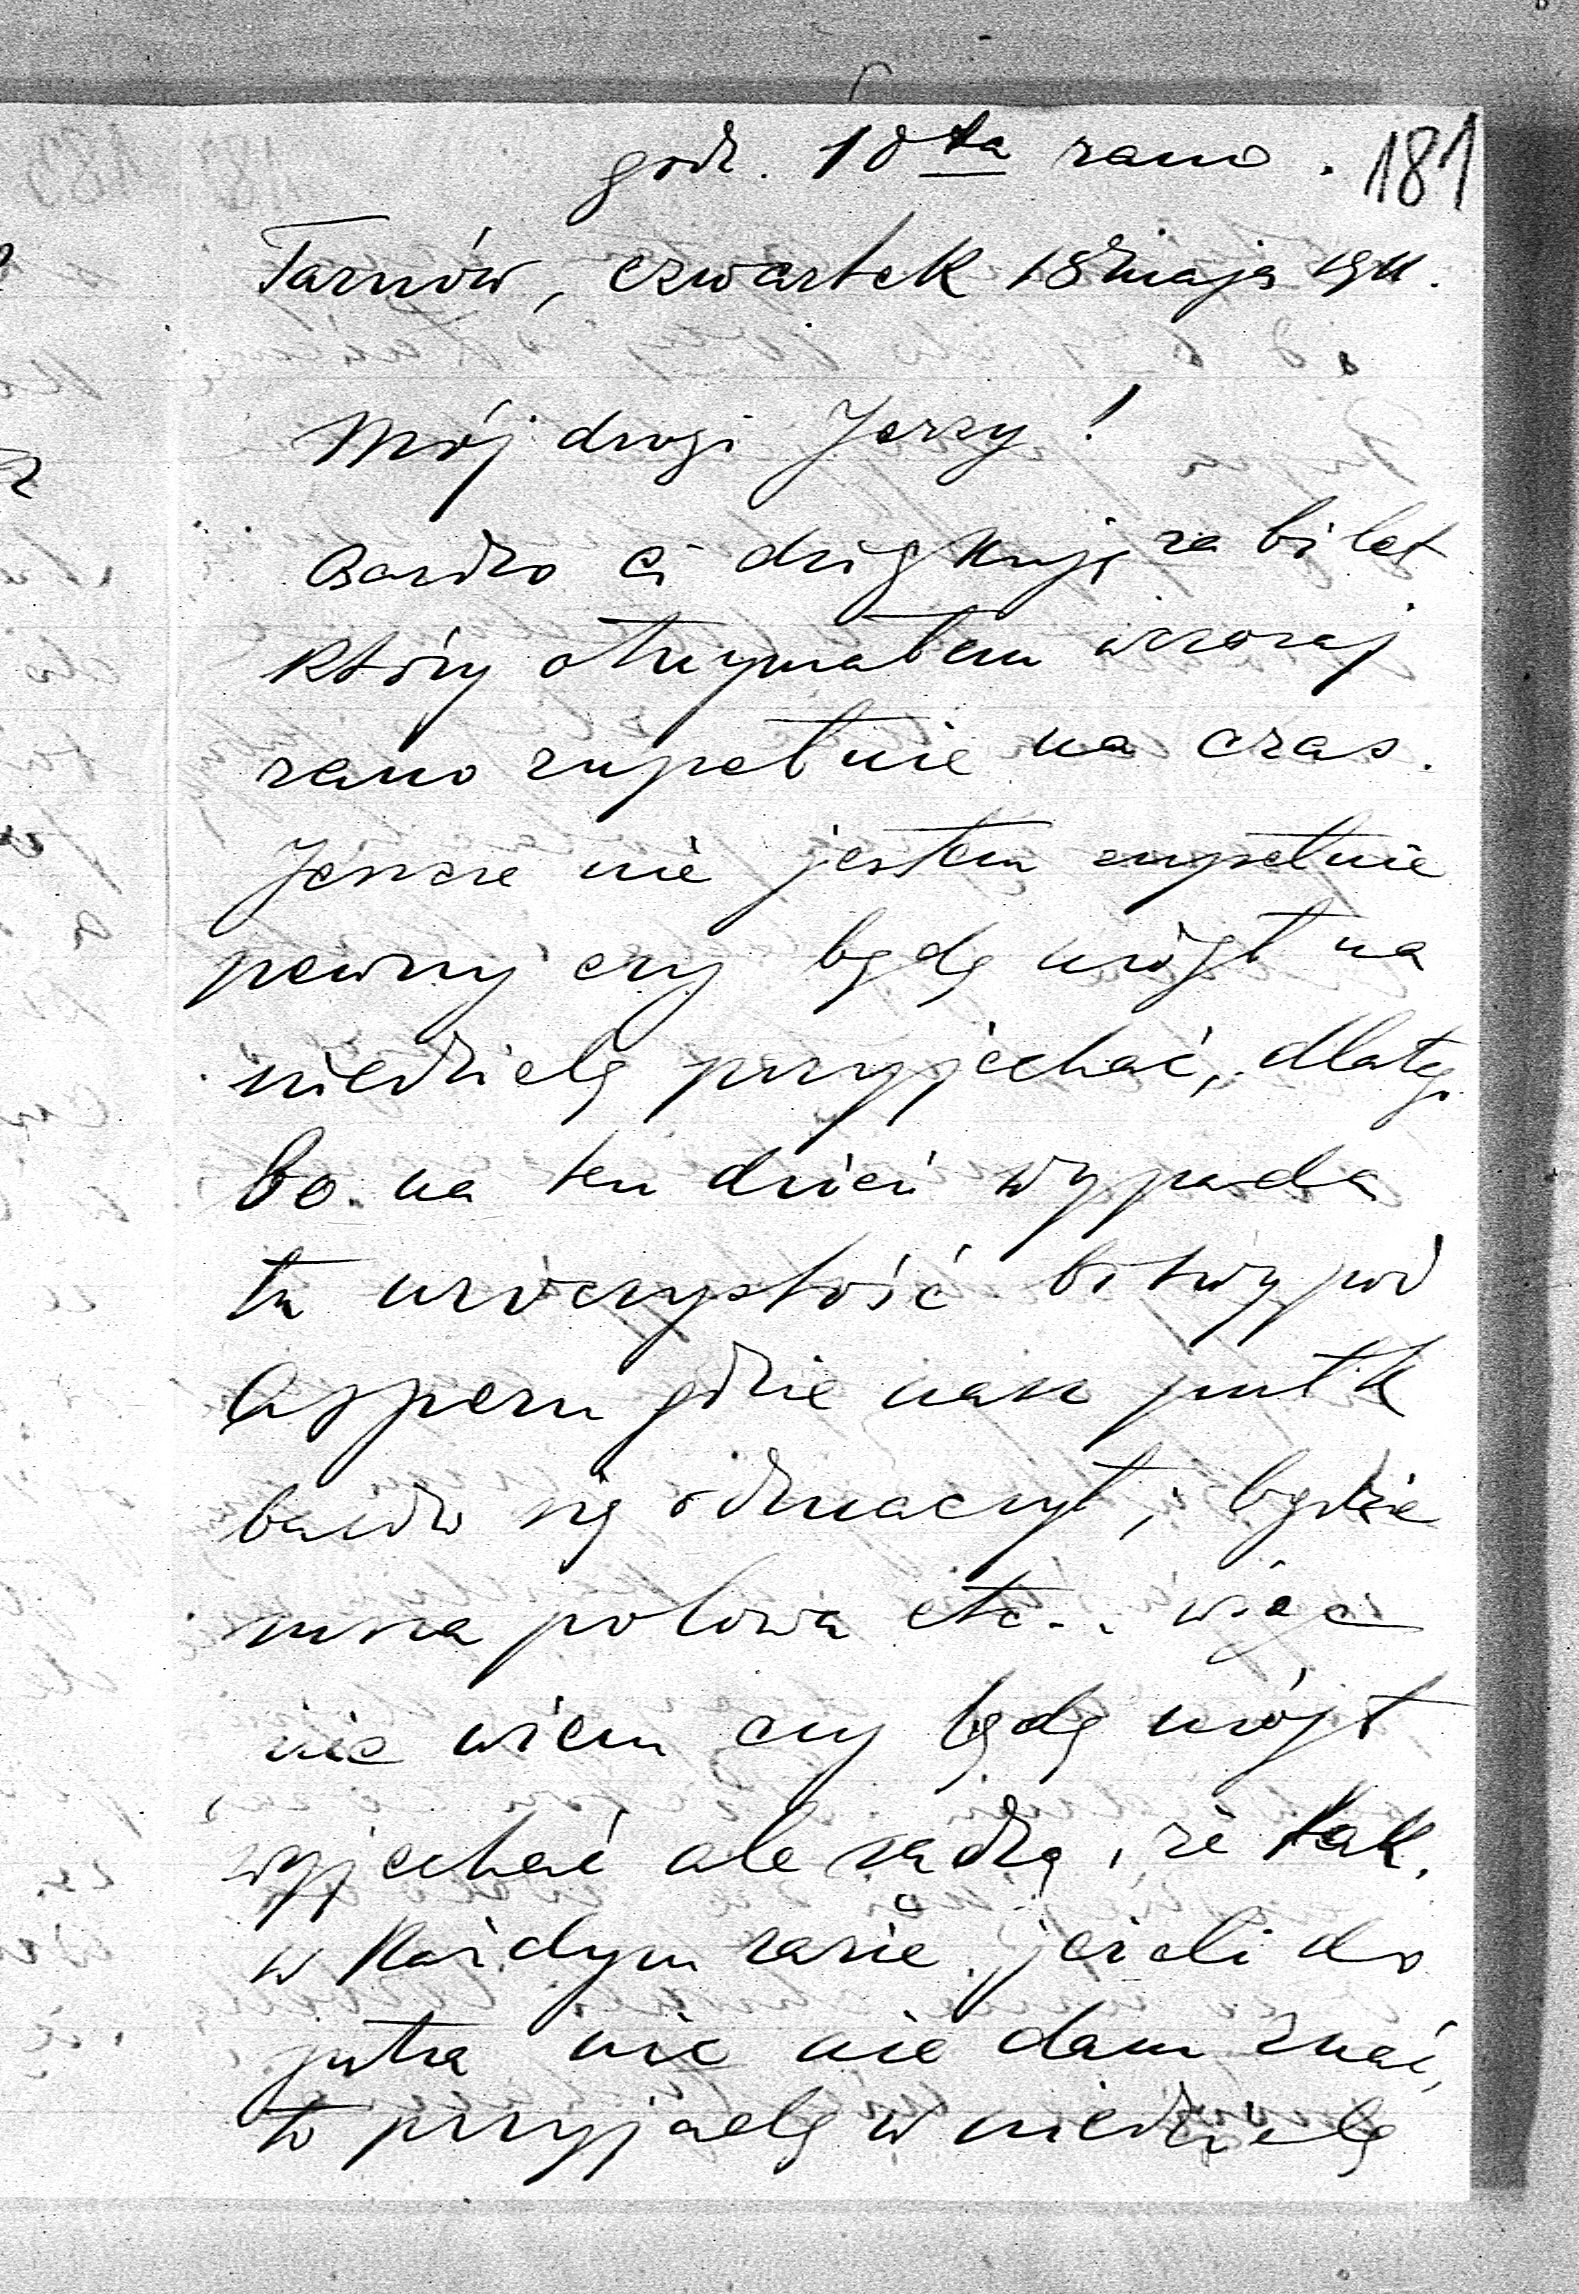 godz. 10ta rano. 181
Tarnów, czwartek 18 maja 1911.
Mój drogi Jerzy!
Bardzo Ci dziękuję za bilet
który otrzymałem wczoraj
rano zupełnie na czas.
Jeszcze nie jestem zupełnie
pewny czy będę mógł na
niedzielę przyjechać, dlatego
bo na ten dzień wypada
tu uroczystość bitwy pod
Aspern gdzie nasz pułk
bardzo się odznaczył; będzie
msza polowa etc.. więc
nie wiem czy będę mógł
wyjechać ale sądzę, że tak.
w każdym razie jeżeli do
jutra nic nie dam znać,
to przyjadę w niedzielę